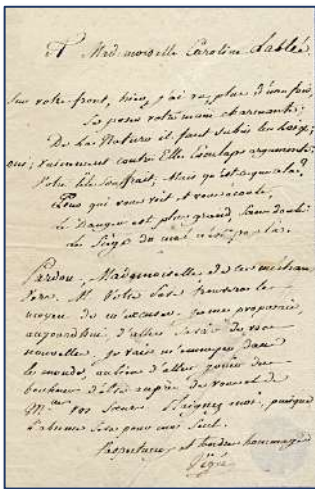 A Mademoiselle Caroline Lablée.
Sur votre front, hier, j'ai vu, plus d'une fois,
Se poser votre main charmante;
De la Nature il faut subir les loix;
oui; vainement contre Elle Esculape argumente;
Votre tête souffrait, Mais qu'est-ce que cela?
Pour qui vous voit et vous écoute,
Le Danger est plus grand, sans doute
Le Siège du mal n'est pas là.
Pardon, Mademoiselle de ces méchans
Vers. M. Votre père trouvera le
moyen de m'excuser. je me proposais,
aujourdhui, d'aller savoir de vos
nouvelles. je vais m'ennuyer dans
le monde, au lieu d'aller jouir du
bonheur d'être auprès de vous et de
M. vos Sœurs. Plaignez moi, puisque
sera pour moi seul.
Respectueux et tendre hommage